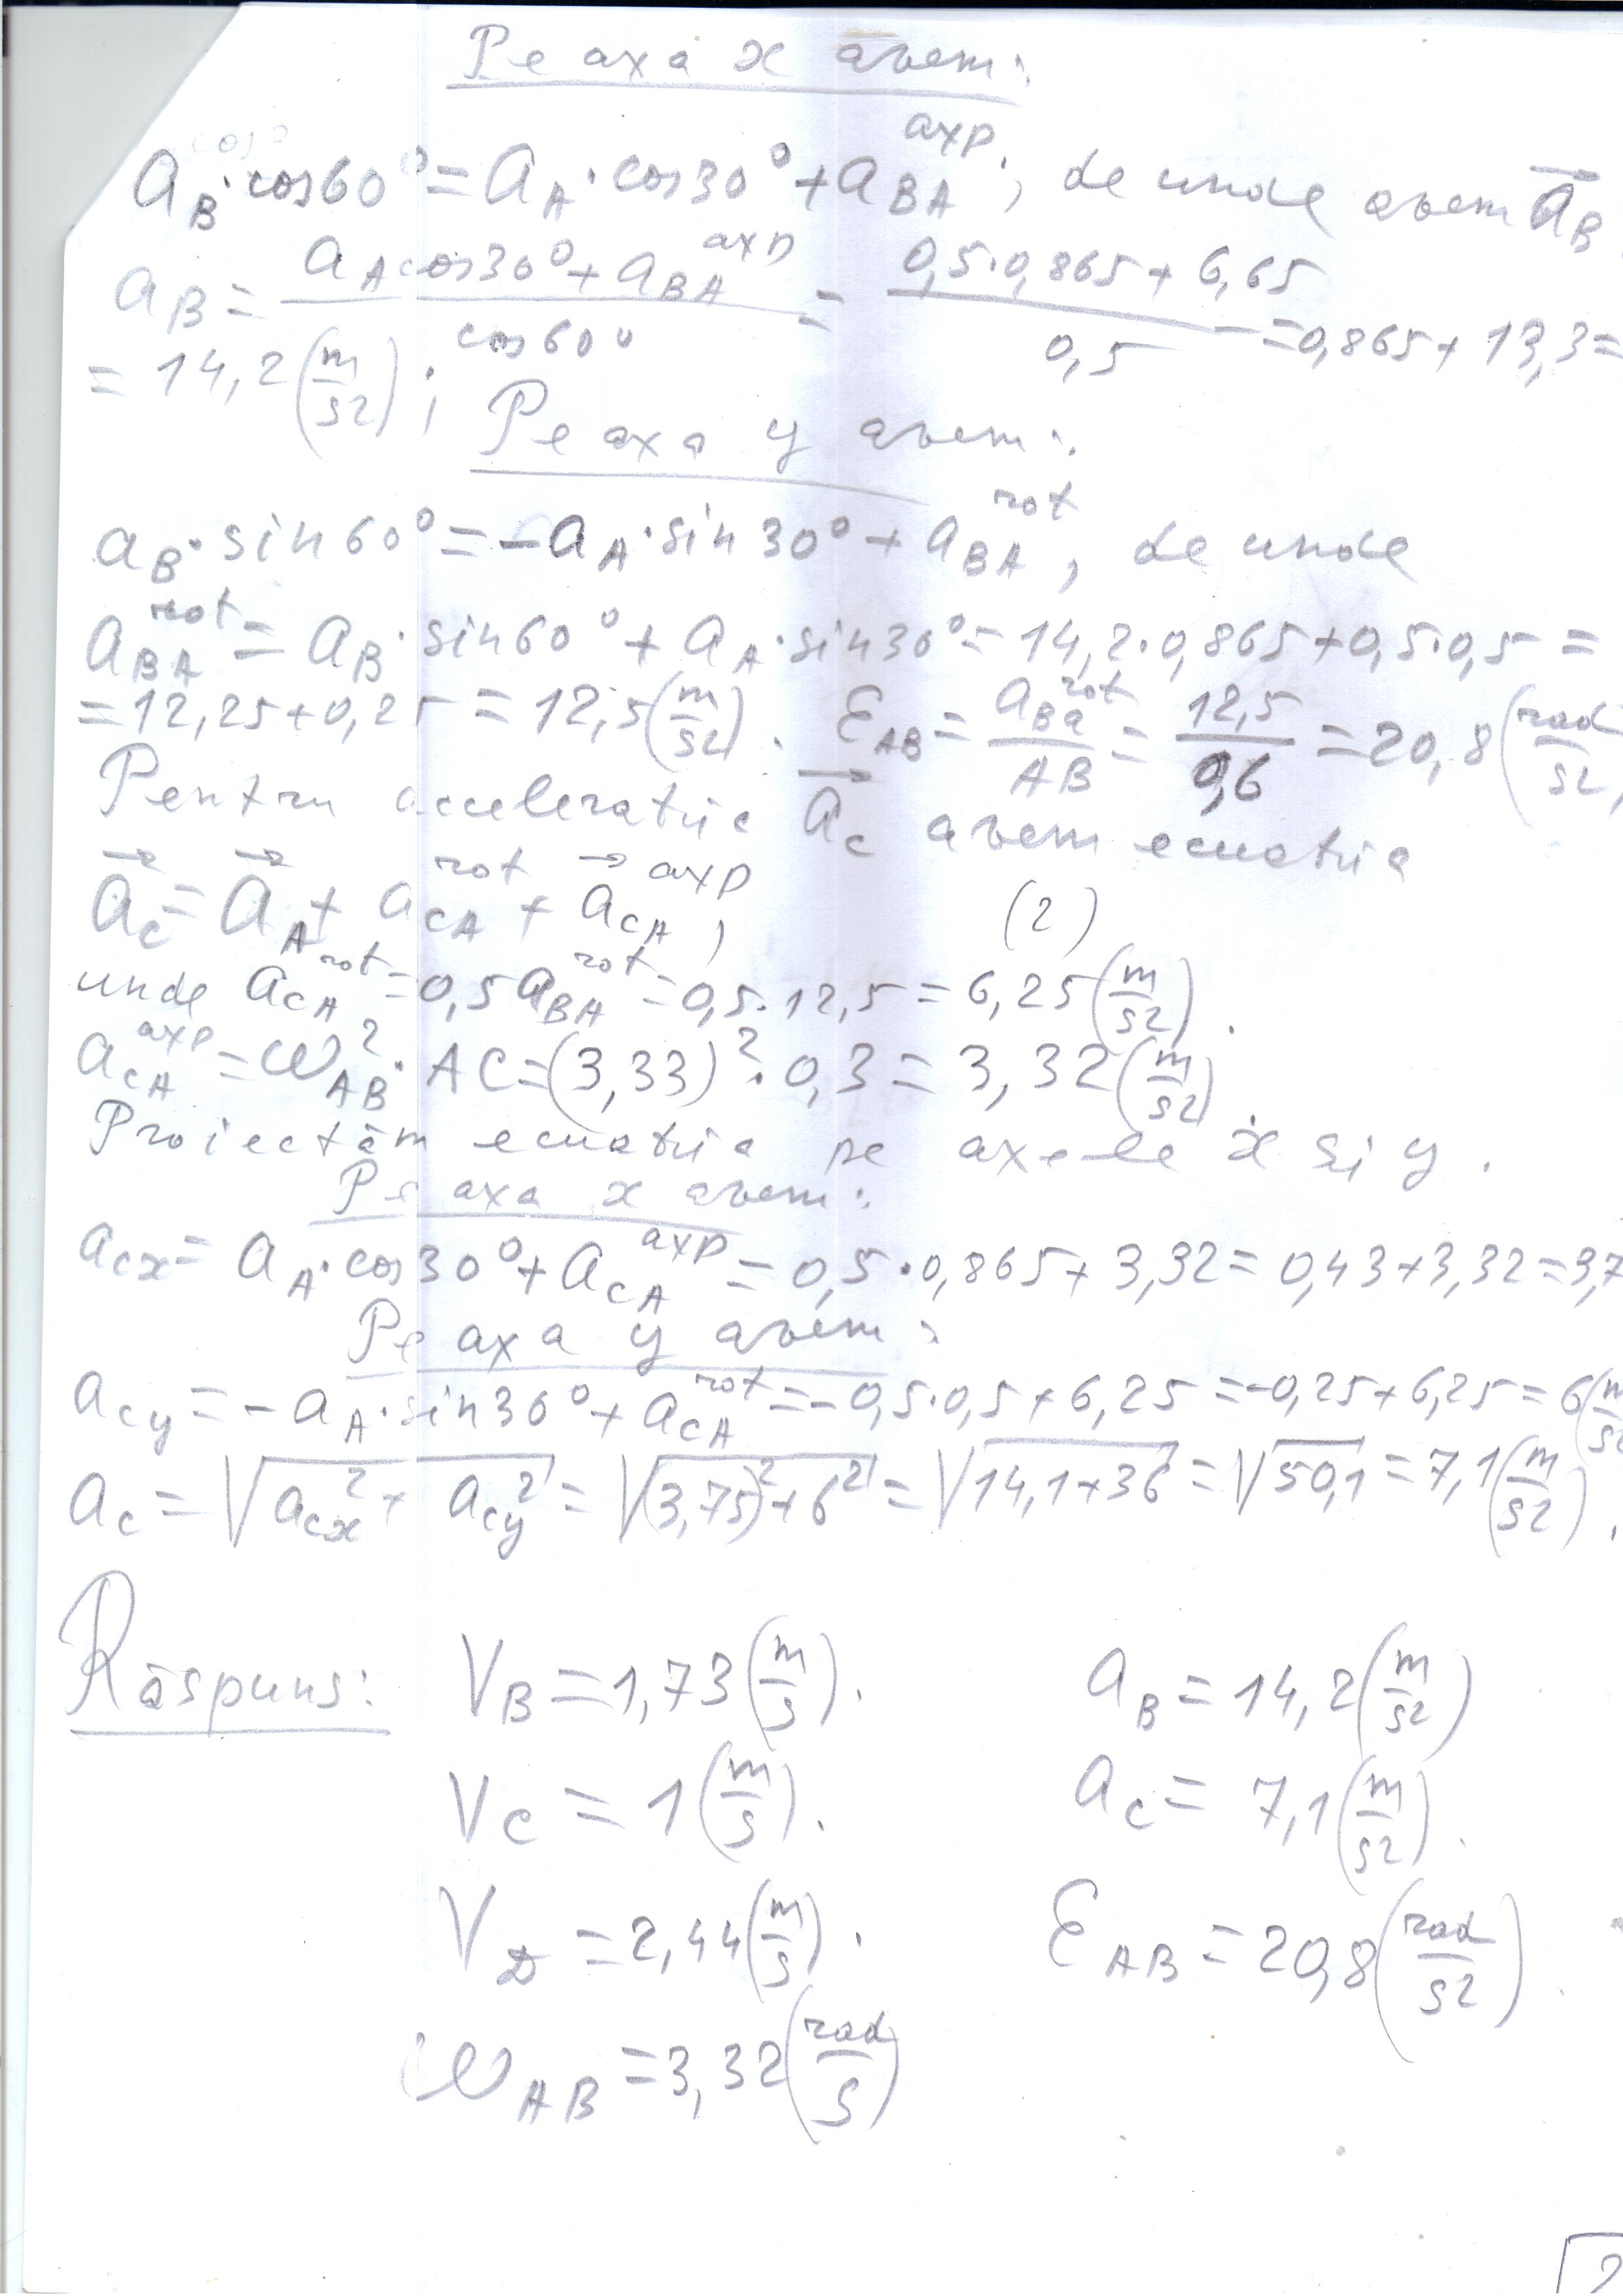 Pe axa x avem:
a_B·cos60°=a_A·cos30°+a_BA^axp., de unde avem a⃗_B
a_B = (a_A cos30°+a_BA^axp)/(cos60°) = (0,5·0,865+6,65)/(0,5) = 0,865+13,3=
=14,2(m/s2);
Pe axa y avem:
a_B·sin60°=-a_A·sin30°+a_BA^rot, de unde
a_BA^rot=a_B·sin60°+a_A·sin30°=14,2·0,865+0,5·0,5=
=12,25+0,25=12,5(m/s2). Ɛ_AB=a_Ba^rot/AB=12,5/0,6=20,8(rad/s2)
Pentru acceleratia a⃗_c avem ecuatia
a⃗_c=a⃗_A+a_cA^rot+a⃗_cA^axp, (2)
unde a_cA^rot=0,5a_BA^rot=0,5·12,5=6,25(m/s2).
a_cA^axp=ω_AB^2·AC=(3,33)^2·0,3=3,32(m/s2).
Proiectăm ecuatia pe axele x si y.
Pe axa x avem:
a_cx=a_A·cos30°+a_cA^axp=0,5·0,865+3,32=0,43+3,32=3,7
Pe axa y avem:
a_cy=-a_A·sin30°+a_cA^rot=-0,5·0,5+6,25=-0,25+6,25=6(m/s2
a_c=√(a_cx^2+a_cy^2)=√((3,75)^2+6^2)=√(14,1+36)=√50,1=7,1(m/s2).
Răspuns: V_B=1,73(m/s). a_B=14,2(m/s2)
V_c=1(m/s). a_c=7,1(m/s2).
V_D=2,44(m/s). Ɛ_AB=20,8(rad/s2)
ω_AB=3,32(rad/s)